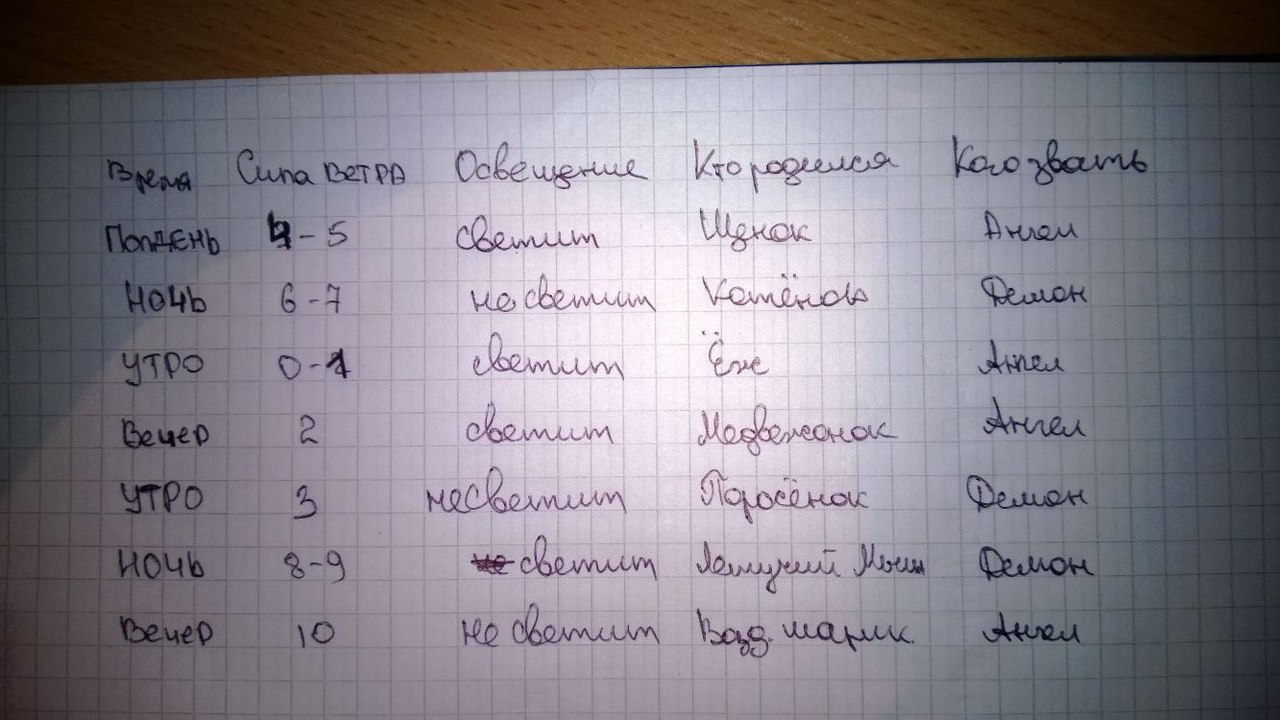 Время Сила ветра Освещение Кто родился Кого звать
Полдень 4-5 светит Щенок Ангел
Ночь 6-7 не светит Котёнок Демон
Утро 0-1 светит Ёж Ангел
Вечер 2 светит Медвежонок Ангел
Утро 3 не светит Поросёнок Демон
Ночь 8-9 светит Летучий Мыш Демон
Вечер 10 не светит Возд. шарик. Ангел